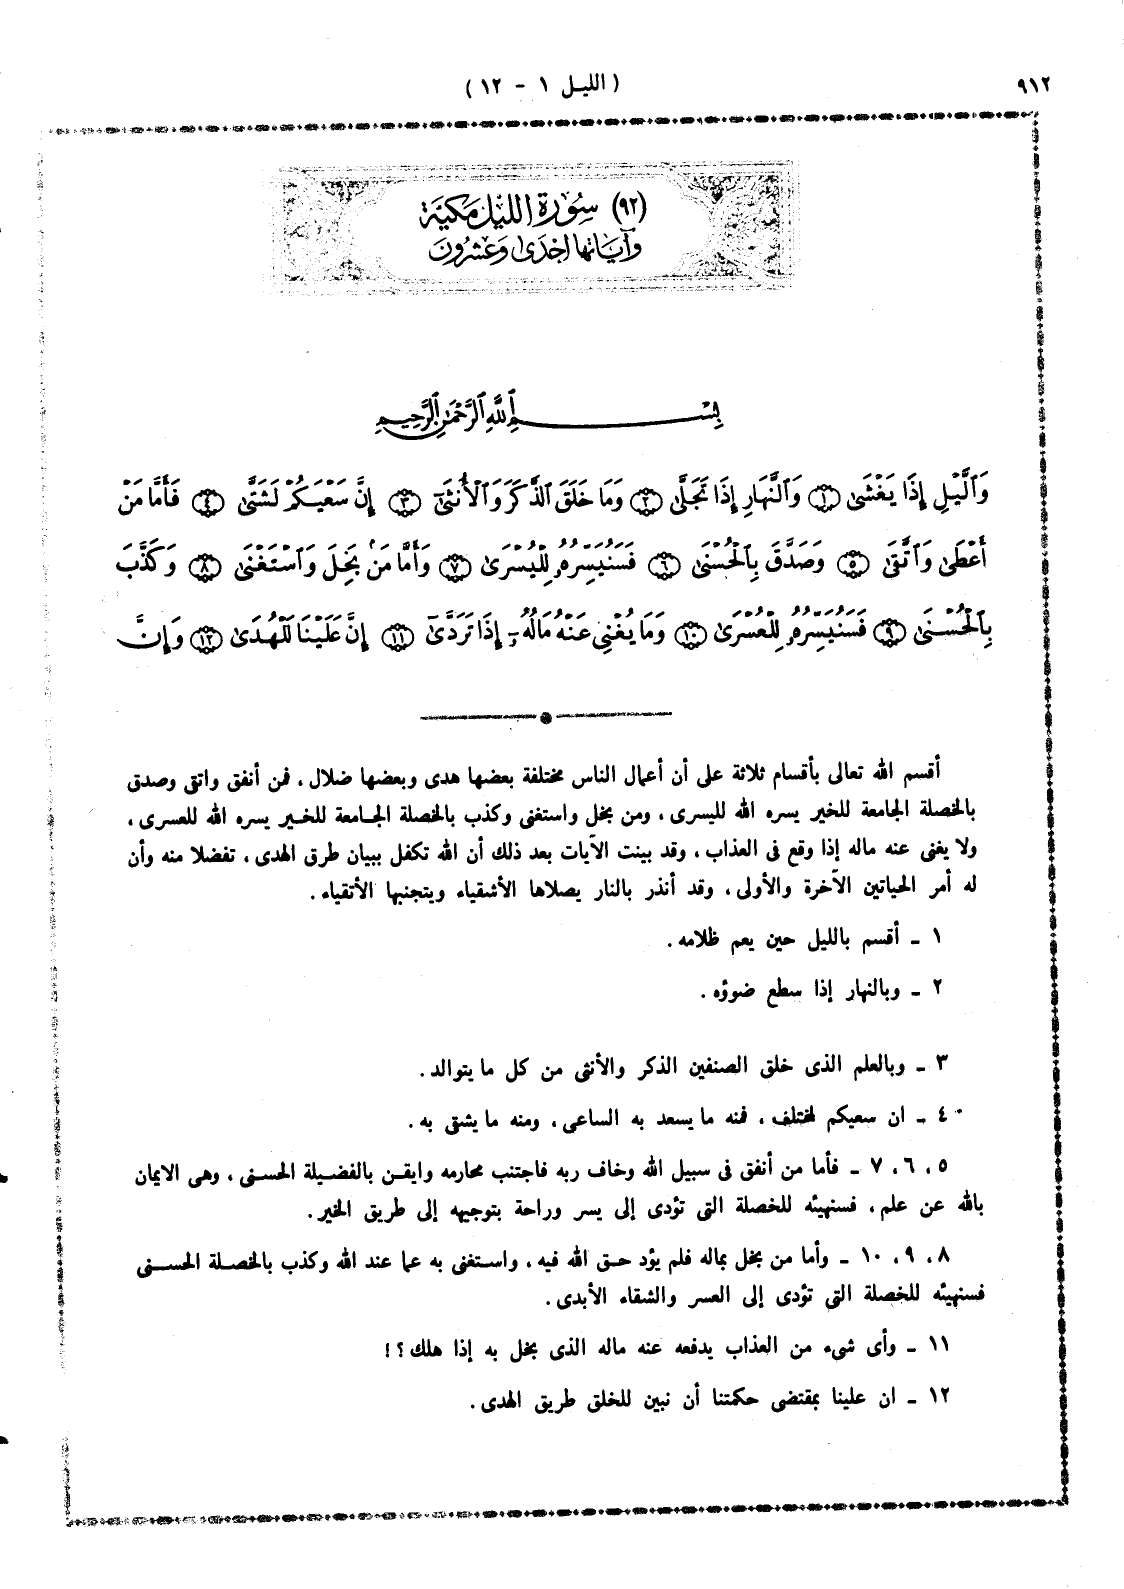 ٩١٢
( الليل ١ - ١٢ )
(٩٢) سورة الليل مكية
وآياتها إحدى وعشرون
بِسْمِ ٱللَّهِ ٱلرَّحْمَٰنِ ٱلرَّحِيمِ
وَٱلَّيْلِ إِذَا يَغْشَىٰ ١ وَٱلنَّهَارِ إِذَا تَجَلَّىٰ ٢ وَمَا خَلَقَ ٱلذَّكَرَ وَٱلْأُنثَىٰٓ ٣ إِنَّ سَعْيَكُمْ لَشَتَّىٰ ٤ فَأَمَّا مَنْ
أَعْطَىٰ وَٱتَّقَىٰ ٥ وَصَدَّقَ بِٱلْحُسْنَىٰ ٦ فَسَنُيَسِّرُهُۥ لِلْيُسْرَىٰ ٧ وَأَمَّا مَنۢ بَخِلَ وَٱسْتَغْنَىٰ ٨ وَكَذَّبَ
بِٱلْحُسْنَىٰ ٩ فَسَنُيَسِّرُهُۥ لِلْعُسْرَىٰ ١٠ وَمَا يُغْنِى عَنْهُ مَالُهُۥٓ إِذَا تَرَدَّىٰٓ ١١ إِنَّ عَلَيْنَا لَلْهُدَىٰ ١٢ وَإِنَّ
أقسم الله تعالى بأقسام ثلاثة على أن أعمال الناس مختلفة بعضها هدى وبعضها ضلال ، فمن أنفق واتقى وصدق
بالخصلة الجامعة للخير يسره الله لليسرى ، ومن بخل واستغنى وكذب بالخصلة الجامعة للخير يسره الله للعسرى ،
ولا يغنى عنه ماله إذا وقع فى العذاب ، وقد بينت الآيات بعد ذلك أن الله تكفل ببيان طرق الهدى ، تفضلا منه وأن
له أمر الحياتين الآخرة والأولى ، وقد أنذر بالنار يصلاها الأشقياء ويتجنبها الأتقياء .
١ ـ أقسم بالليل حين يعم ظلامه .
٢ ـ وبالنهار إذا سطع ضوؤه .
٣ ـ وبالعلم الذى خلق الصنفين الذكر والأنثى من كل ما يتوالد .
٤ ـ ان سعيكم لمختلف ، فمنه ما يسعد به الساعى ، ومنه ما يشقى به .
٥ ، ٦ ، ٧ ـ فأما من أنفق فى سبيل الله وخاف ربه فاجتنب محارمه وايقن بالفضيلة الحسنى ، وهى الايمان
بالله عن علم ، فسنهيئه للخصلة التى تؤدى إلى يسر وراحة بتوجيهه إلى طريق الخير .
٨ ، ٩ ، ١٠ ـ وأما من بخل بماله فلم يؤد حق الله فيه ، واستغنى به عما عند الله وكذب بالخصلة الحسنى
فسنهيئه للخصلة التى تؤدى إلى العسر والشقاء الأبدى .
١١ ـ وأى شىء من العذاب يدفعه عنه ماله الذى بخل به إذا هلك ؟ !
١٢ ـ ان علينا بمقتضى حكمتنا أن نبين للخلق طريق الهدى .